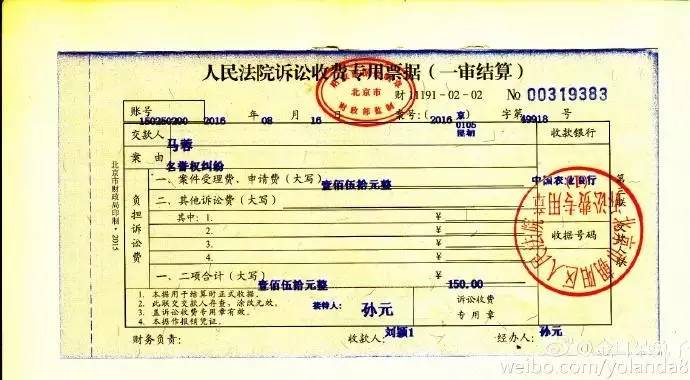 人民法院诉讼收费专用票据(一审结算)
北京市
财政部监制
财 11191-02-02 No 00319383
账号
150250200 2016 年 08 月 16 案号:(2016 京 0105 字第 49918 号
交款人 马蓉 收款银行
案由 名誉权纠纷
负担诉讼费
一、案件受理费、申请费(大写) 壹佰伍拾元整
中国农业银行
二、其他诉讼费(大写) ¥
其中:1. ¥
2. ¥
3. ¥
4. ¥
收据号码
一、二项合计(大写) 壹佰伍拾元整 150.00
1. 本据用于结算时正式收据。
2. 此联交交款人存查,涂改无效。
3. 盖诉讼收费专用章有效。
4. 本据作报销凭证。
接待人: 孙元
诉讼收费
专用章
财务负责: 收款人: 刘颖1 经办人: 孙元
北京市财政局印制·2015
北京市朝阳区人民法院
诉讼费专用章
weibo.com/yolanda8